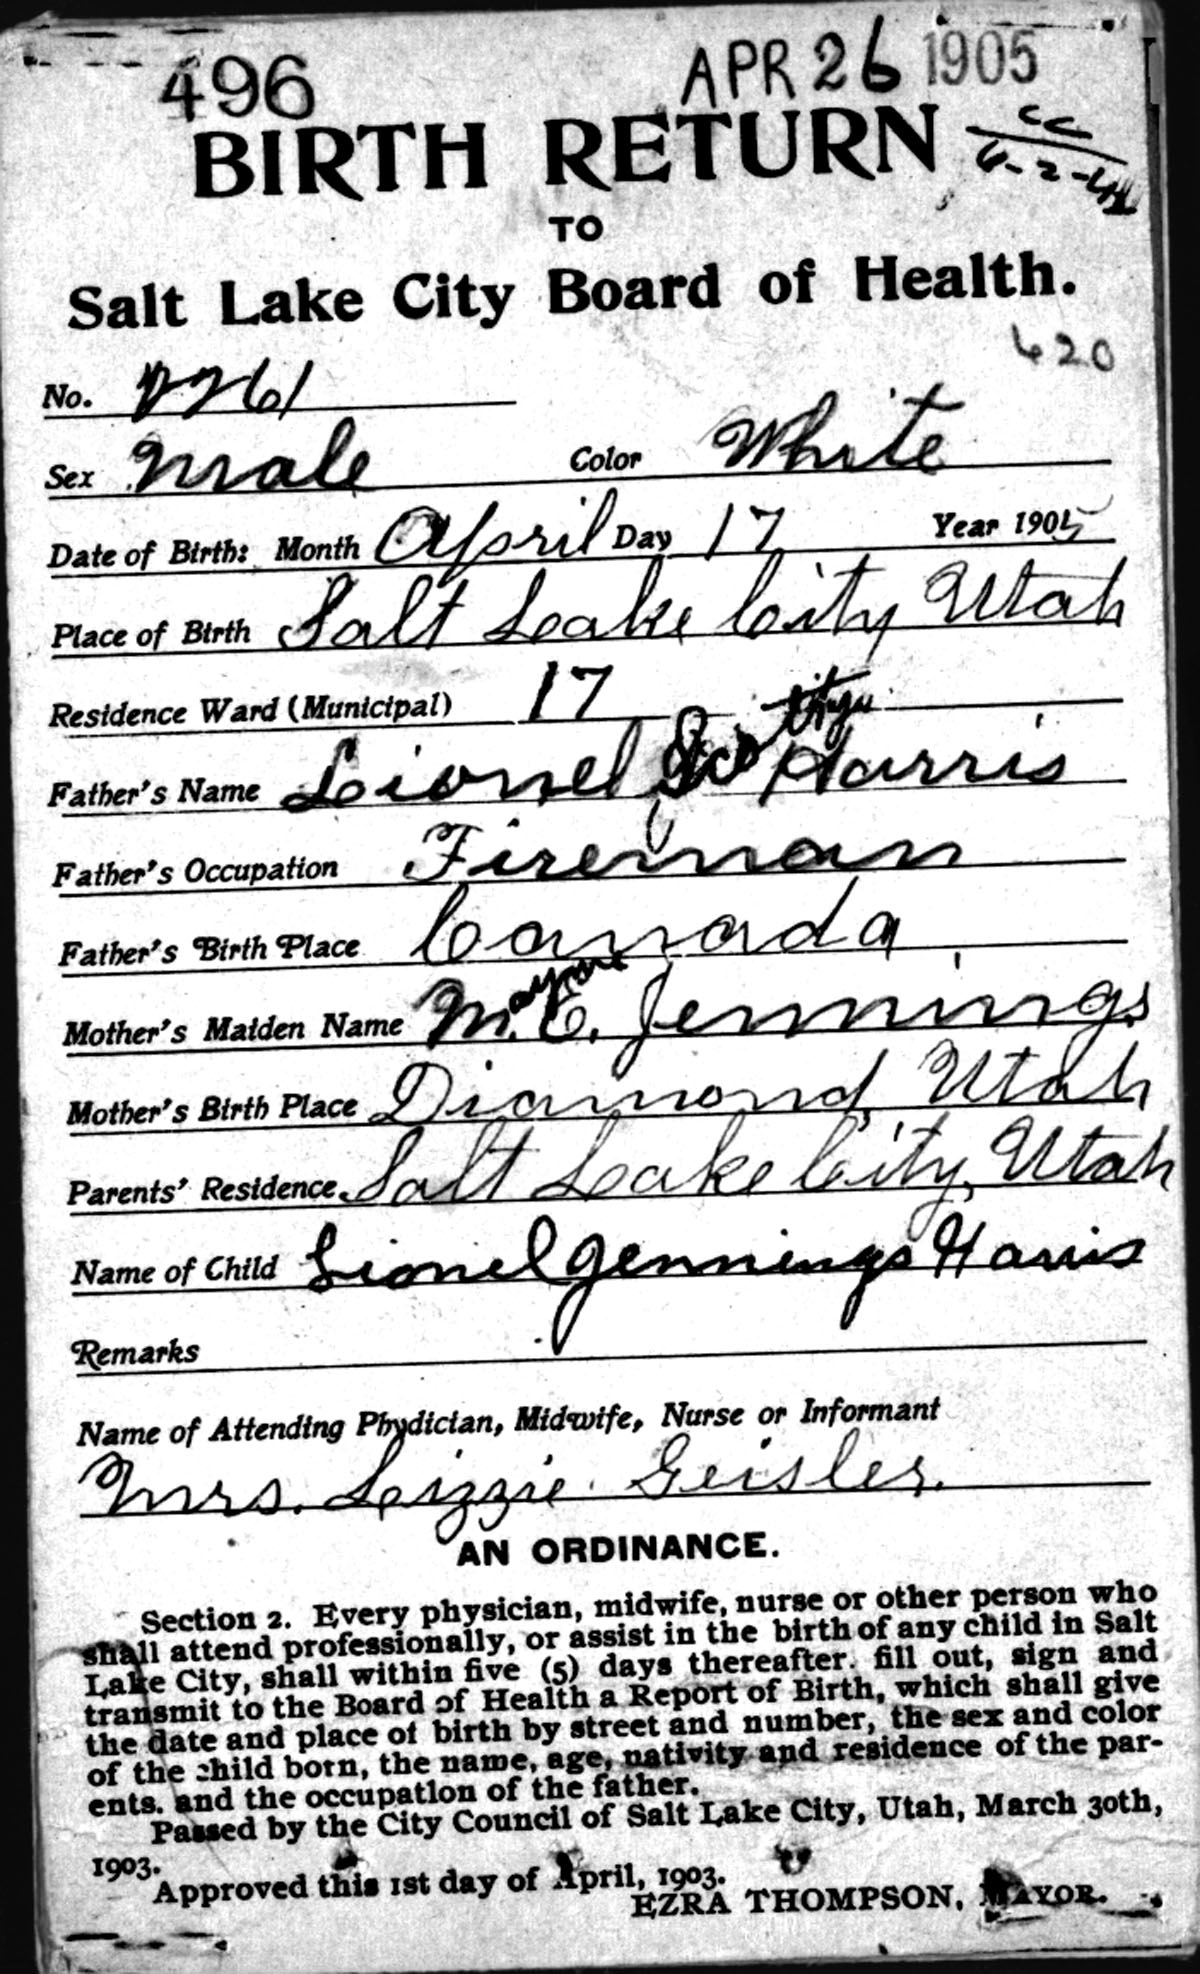 496 APR 26 1905
BIRTH RETURN
cc
TO
Salt Lake City Board of Health.
620
No. 2261
Sex Male Color White
Date of Birth: Month April Day 17 Year 1905
Place of Birth Salt Lake City Utah
Residence Ward (Municipal) 17
Father's Name Lionel Harris
Father's Occupation Fireman
Father's Birth Place Canada
ayme
Mother's Maiden Name M. E. Jennings
Mother's Birth Place Diamond, Utah
Parents' Residence Salt Lake City, Utah
Name of Child Lionel Jennings Harris
Remarks
Name of Attending Phydician, Midwife, Nurse or Informant
Mrs. Lizzie Geisler.
AN ORDINANCE.
Section 2. Every physician, midwife, nurse or other person who
shall attend professionally, or assist in the birth of any child in Salt
Lake City, shall within five (5) days thereafter. fill out, sign and
transmit to the Board of Health a Report of Birth, which shall give
the date and place of birth by street and number, the sex and color
of the child born, the name, age, nativity and residence of the par-
ents. and the occupation of the father.
Passed by the City Council of Salt Lake City, Utah, March 30th,
1903.
Approved this 1st day of April, 1903.
EZRA THOMPSON, MAYOR.